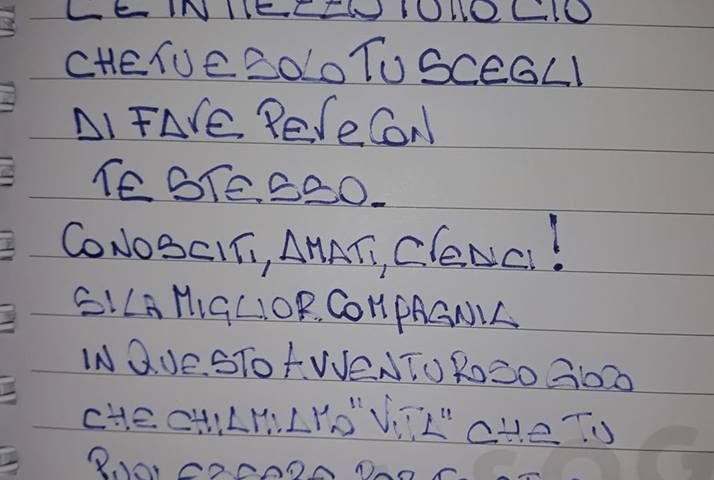 IN MEZZO TUTTO CIO
CHE TU E SOLO TU SCEGLI
DI FARE PER E CON
TE STESSO.
CONOSCITI, AMATI, CREDICI!
SI LA MIGLIOR COMPAGNIA
IN QUESTO AVVENTUROSO GIOCO
CHE CHIAMIAMO "VITA" CHE TU
PUOI